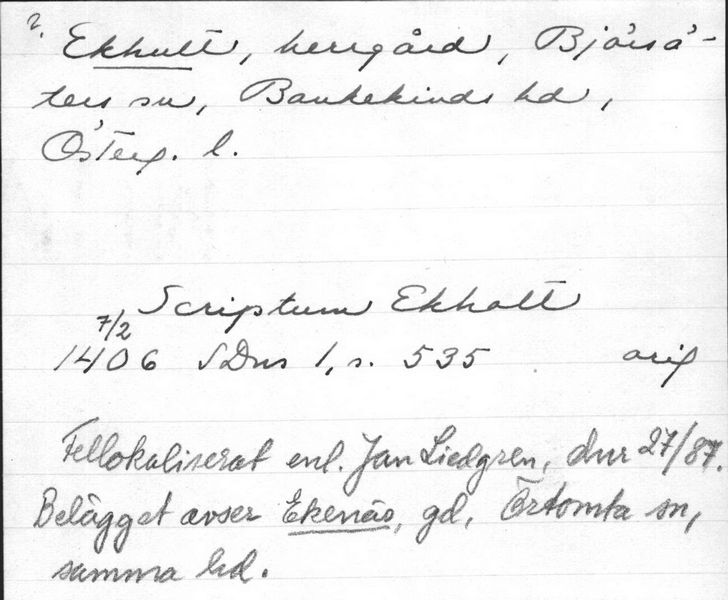 ? Ekhult, herrgård, Björsä-
ters sn, Bankekinds hd,
Österg. l.
Scriptum Ekholt
7/2
1406 SDns 1, s. 535 orig
Fellokaliserat enl. Jan Liedgren, dnr 27/87.
Belägget avser Ekenäs, gd, Örtomta sn,
samma hd.